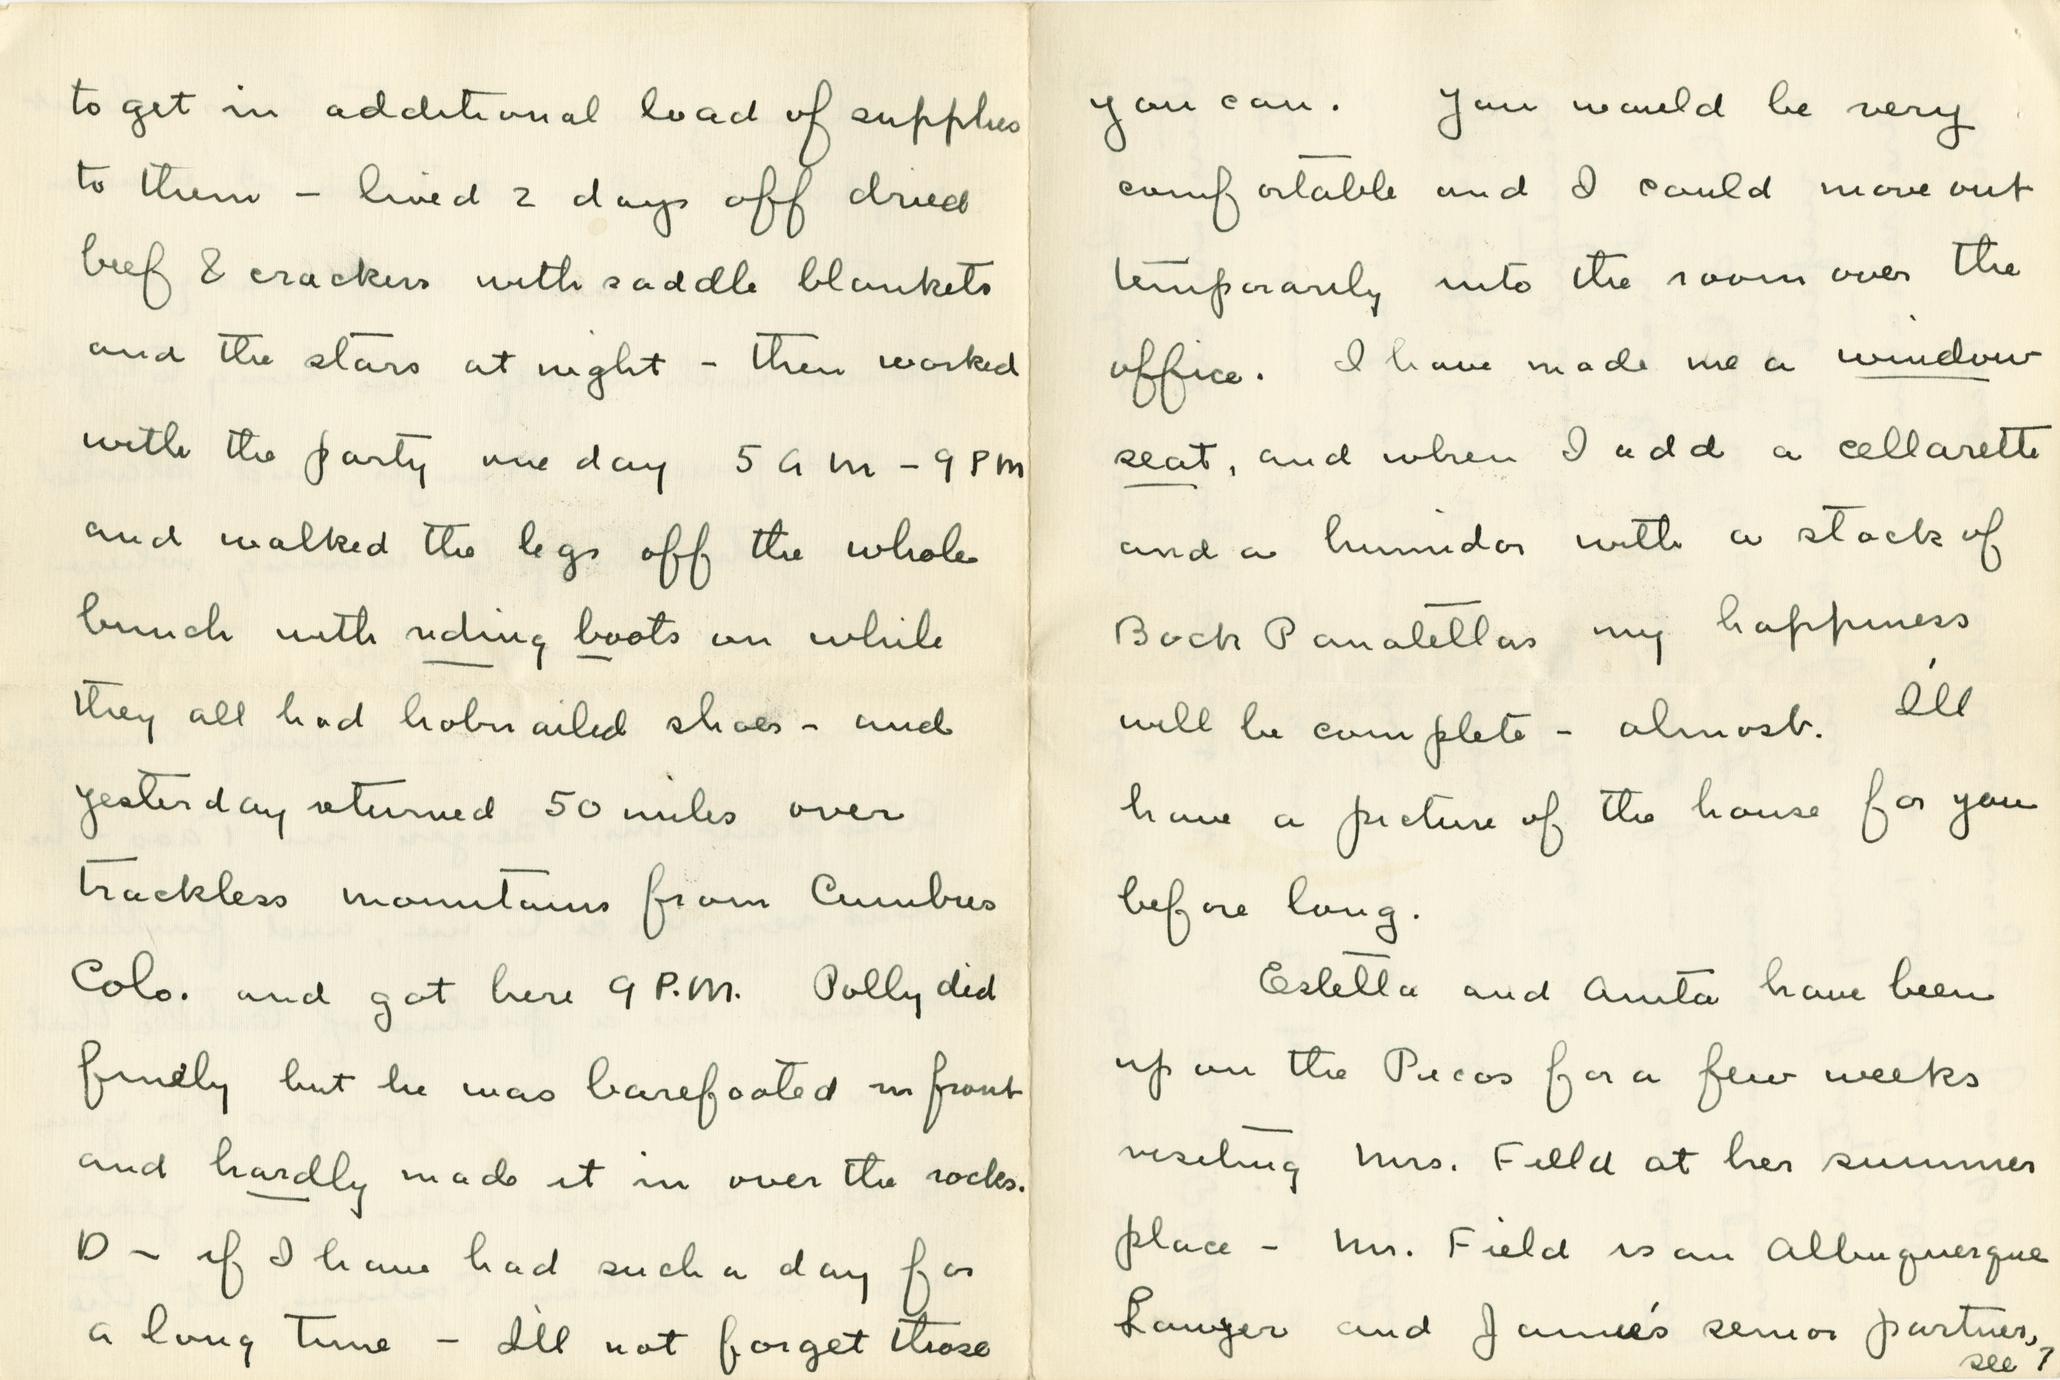 to get in additional load of supplies
to them – lived 2 days off dried
beef & crackers with saddle blankets
and the stars at night – then worked
with the party one day 5 AM – 9 PM
and walked the legs off the whole
bunch with riding boots on while
they all had hobnailed shoes – and
yesterday returned 50 miles over
trackless mountains from Cumbres
Colo. and got here 9 P.M. Polly did
finely but he was barefooted in front
and hardly made it in over the rocks.
D – if I have had such a day for
a long time – I'll not forget those
you can. You would be very
comfortable and I could move out
temporarily into the room over the
office. I have made me a window
seat, and when I add a cellarette
and a humidor with a stock of
Bock Panatellas my happiness
will be complete – almost. I'll
have a picture of the house for you
before long.
Estella and Anita have been
up on the Pecos for a few weeks
visiting Mrs. Field at her summer
place – Mr. Field is an Albuquerque
Lawyer and Jamie's senior partner,
see ?